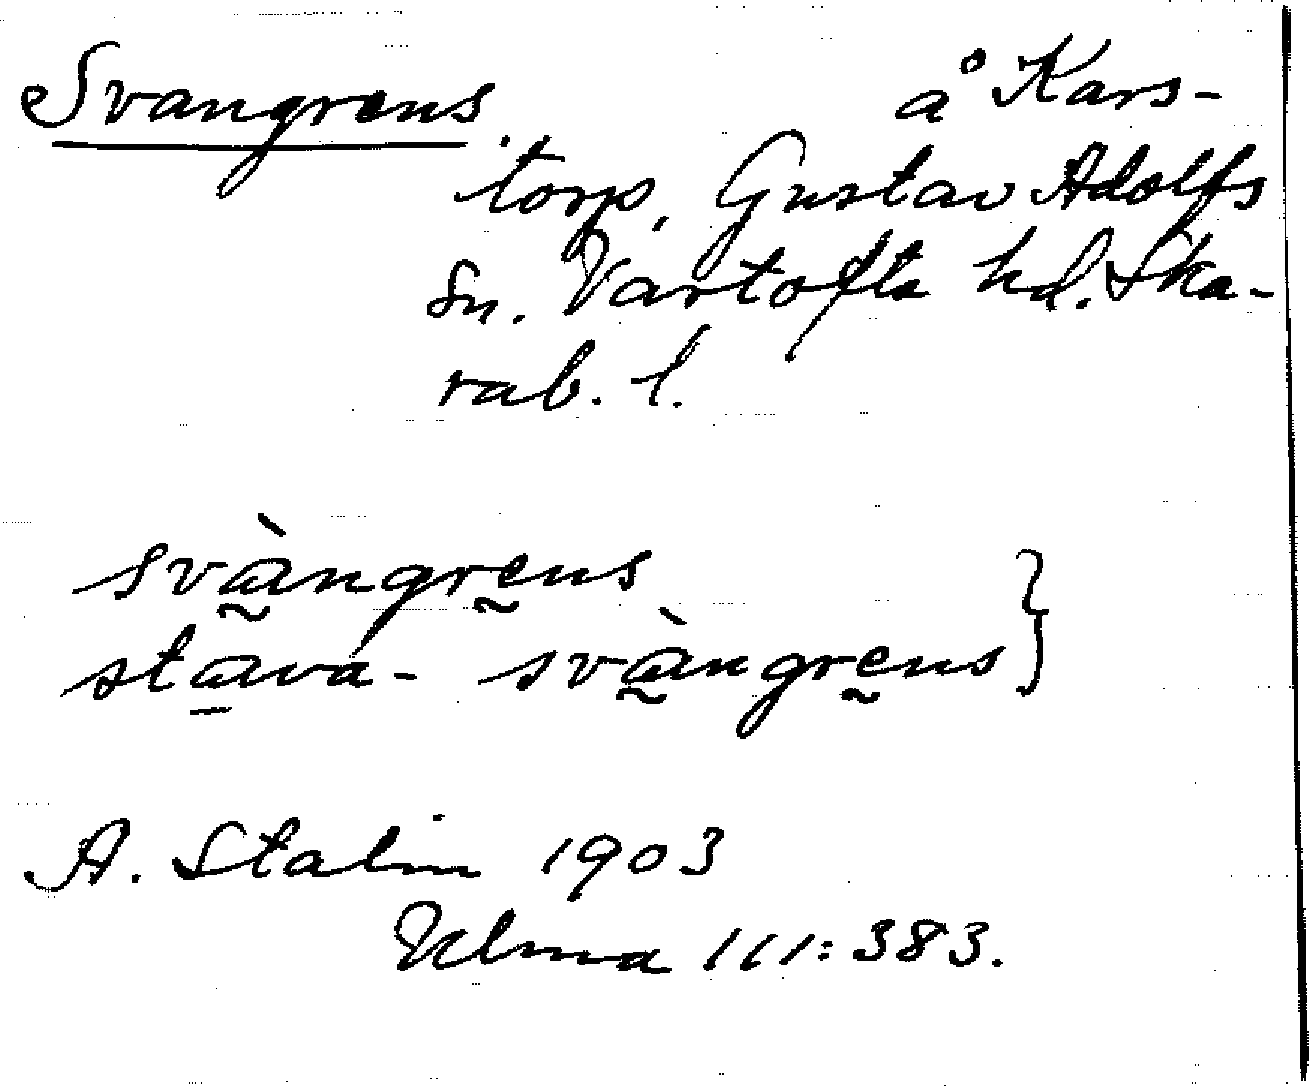 Svangrens å Kars-
torp, Gustav Adolfs
sn. Vartofta hd. Ska-
rab. l.
svàngrens
stava- svàngrens }
A. Stalin 1903
Ulma 111:383.